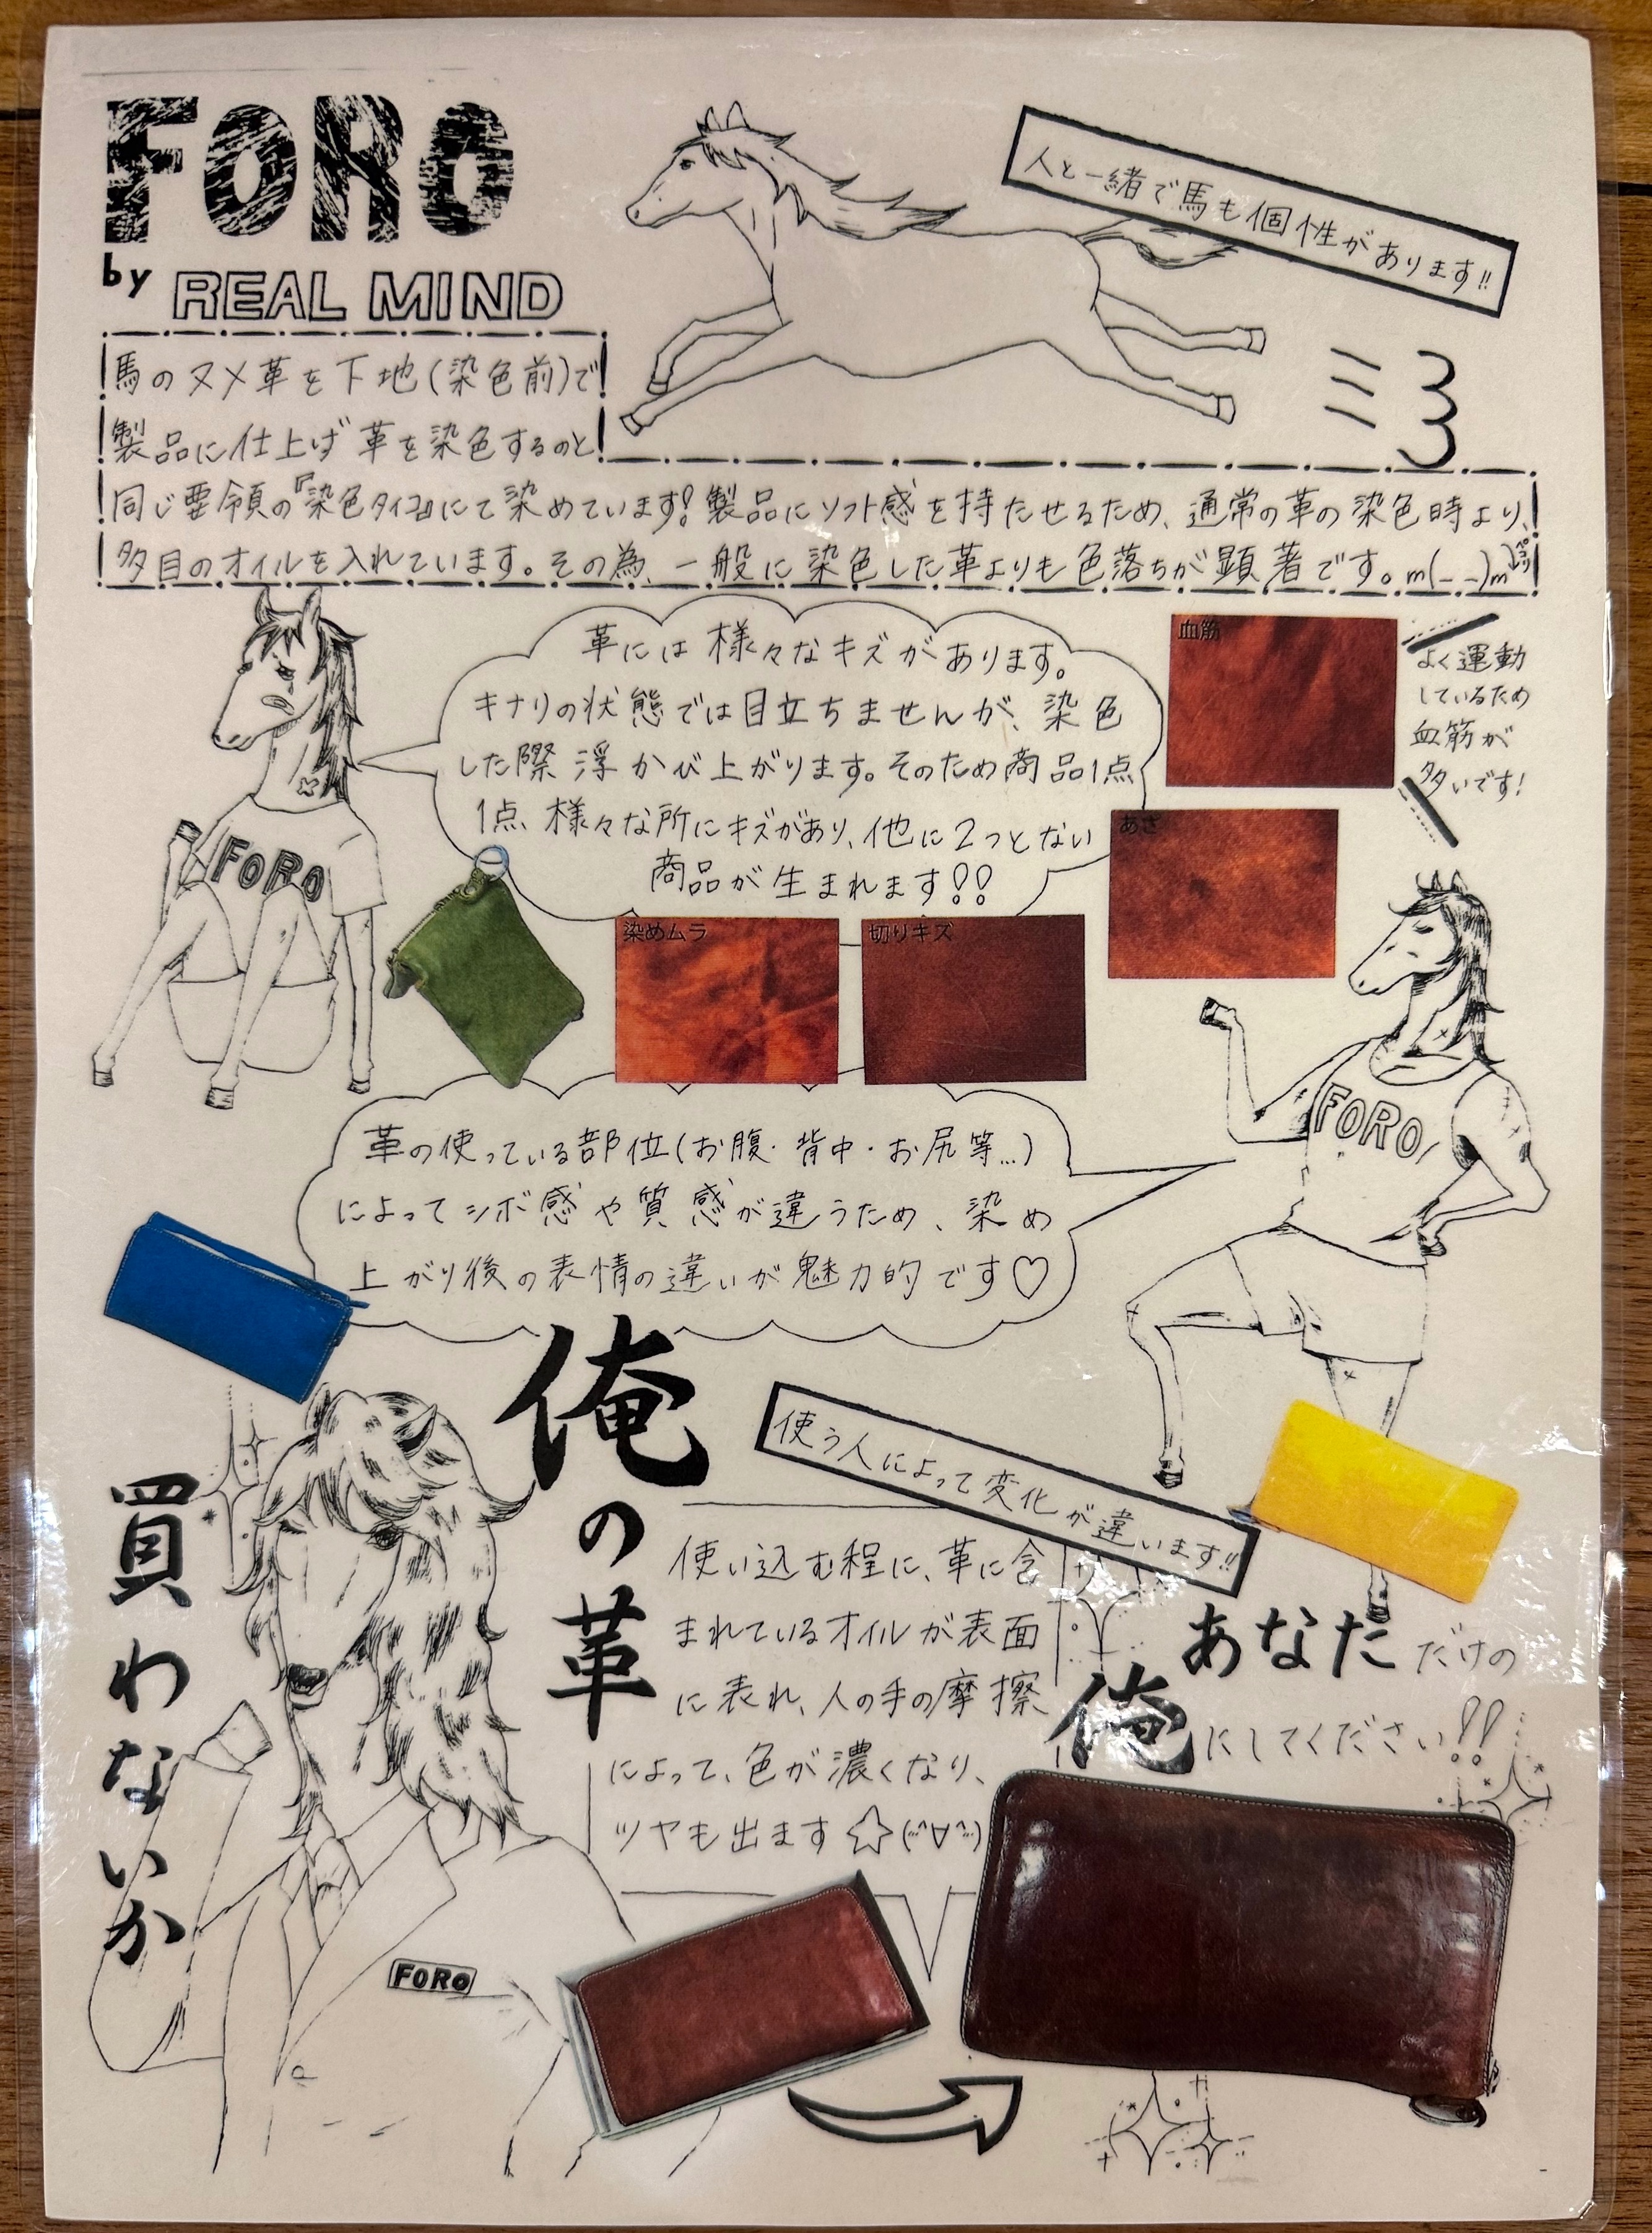 FORO
by REAL MIND
人と一緒で馬も個性があります!!
馬のヌメ革を下地(染色前)で
製品に仕上げ革を染色するのと
同じ要領の『染色タイコ』にて染めています!製品にソフト感を持たせるため、通常の革の染色時より、
多目のオイルを入れています。その為、一般に染色した革よりも色落ちが顕著です。m(_ _)mペコリ
革には様々なキズがあります。
キナリの状態では目立ちませんが、染色
した際浮かび上がります。そのため商品1点
1点、様々な所にキズがあり、他に2つとない
商品が生まれます!!
血筋
よく運動
しているため
血筋が
多いです!
あざ
染めムラ
切りキズ
FORO
FORO
革の使っている部位(お腹・背中・お尻等…)
によってシボ感や質感が違うため、染め
上がり後の表情の違いが魅力的です♡
俺の革
買わないか
使う人によって変化が違います!!
使い込む程に、革に含
まれているオイルが表面
に表れ、人の手の摩擦
によって、色が濃くなり、
ツヤも出ます☆(^∀^)
あなただけの
俺にしてください!!
FORO